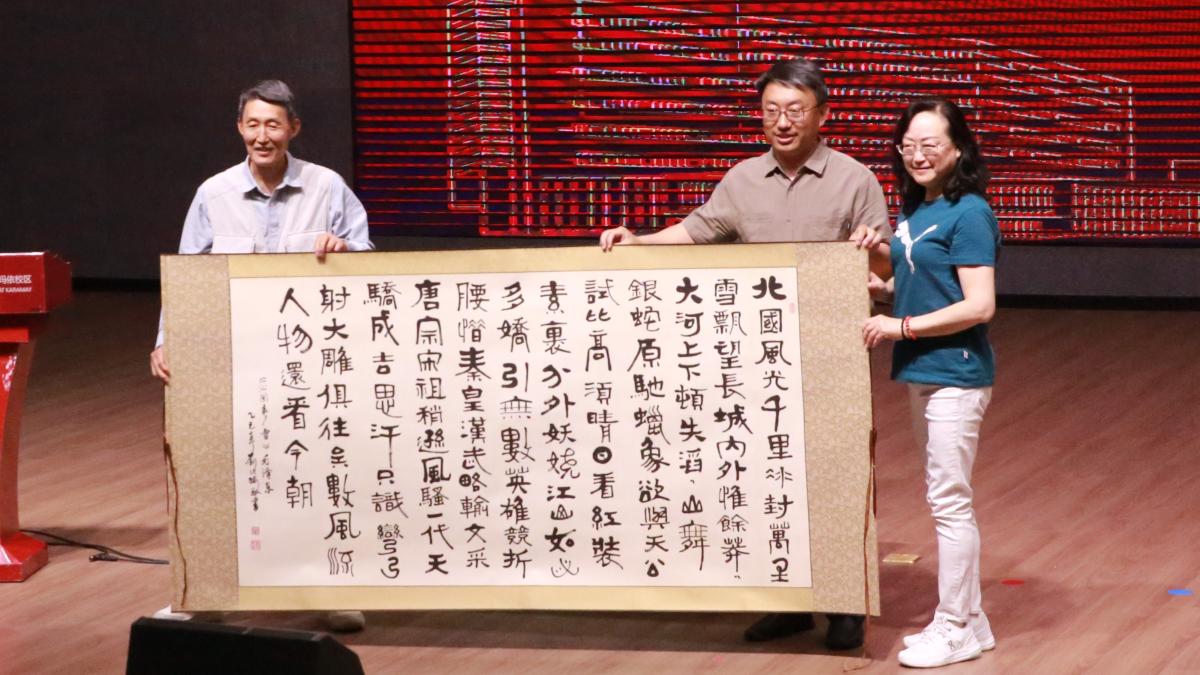 北國風光千里冰封萬里
雪飄望長城內外惟餘莽〻
大河上下頓失滔〻山舞
銀蛇原馳蠟象欲與天公
試比高須晴日看紅裝
素裹分外妖嬈江山如此
多嬌引無數英雄競折
腰惜秦皇漢武略輸文采
唐宗宋祖稍遜風騷一代天
驕成吉思汗只識彎弓
射大雕俱往矣數風流
人物還看今朝
玛依校区
AT KARAMAY